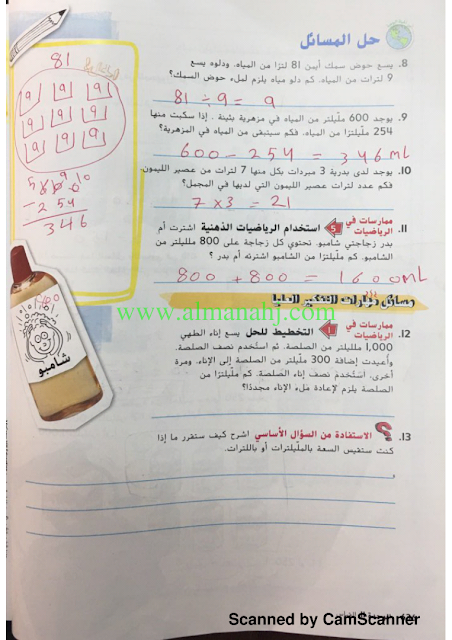 حل المسائل
8. يسع حوض سمك أيمن 81 لترًا من المياه. ودلوه يسع
9 لترات من المياه. كم دلو مياه يلزم لملء حوض السمك؟
81 ÷ 9 = 9
9. يوجد 600 ملّيلتر من المياه في مزهرية بثينة . إذا سكبت منها
254 ملّيلترًا من المياه. فكم سيتبقى من المياه في المزهرية؟
600 - 254 = 346 mL
10. يوجد لدى بدرية 3 مبردات بكل منها 7 لترات من عصير الليمون.
فكم عدد لترات عصير الليمون التي لديها في المجمل؟
7 x 3 = 21
ممارسات في الرياضيات 5
11. استخدام الرياضيات الذهنية اشترت أم
بدر زجاجتي شامبو. تحتوي كل زجاجة على 800 ملليلتر من
الشامبو. كم ملّيلترًا من الشامبو اشترته أم بدر ؟
800 + 800 = 1600 mL
مسائل مهارات التفكير العليا
www.almanahj.com
ممارسات في الرياضيات 1
12. التخطيط للحل يسع إناء الطهي
1,000 ملليلتر من الصلصة. تم استخدم نصف الصلصة.
وأعيدت إضافة 300 ملّيلتر من الصلصة إلى الإناء. ومرة
أخرى. استُخدم نصف إناء الصلصة. كم ملّيلترًا من
الصلصة يلزم لإعادة ملء الإناء مجددًا؟
13. الاستفادة من السؤال الأساسي اشرح كيف ستقرر ما إذا
كنت ستقيس السعة بالملّيلترات أو باللترات.
81
9 9 9
9 9 9
9 9 9
5 9 10
600
- 254
346
شامبو
Scanned by CamScanner